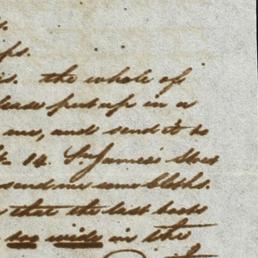 the whole of
please put up in a
me, and send it to
14. St James's Stree
send me some cloths.
that the last boots
too wide in the